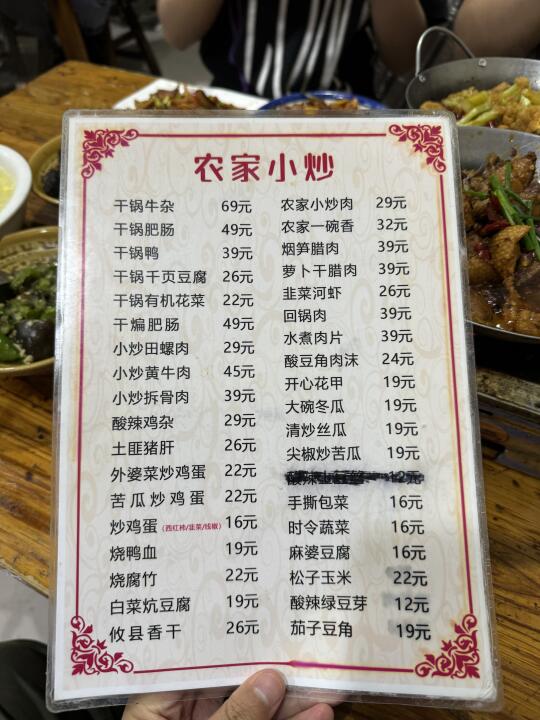 农家小炒
干锅牛杂 69元
干锅肥肠 49元
干锅鸭 39元
干锅千页豆腐 26元
干锅有机花菜 22元
干煸肥肠 49元
小炒田螺肉 29元
小炒黄牛肉 45元
小炒拆骨肉 39元
酸辣鸡杂 29元
土匪猪肝 26元
外婆菜炒鸡蛋 22元
苦瓜炒鸡蛋 22元
炒鸡蛋（西红柿/韭菜/线椒） 16元
烧鸭血 19元
烧腐竹 22元
白菜炕豆腐 19元
攸县香干 26元
农家小炒肉 29元
农家一碗香 32元
烟笋腊肉 39元
萝卜干腊肉 39元
韭菜河虾 26元
回锅肉 39元
水煮肉片 39元
酸豆角肉沫 24元
开心花甲 19元
大碗冬瓜 19元
清炒丝瓜 19元
尖椒炒苦瓜 19元
酸辣 12元
手撕包菜 16元
时令蔬菜 16元
麻婆豆腐 16元
松子玉米 22元
酸辣绿豆芽 12元
茄子豆角 19元